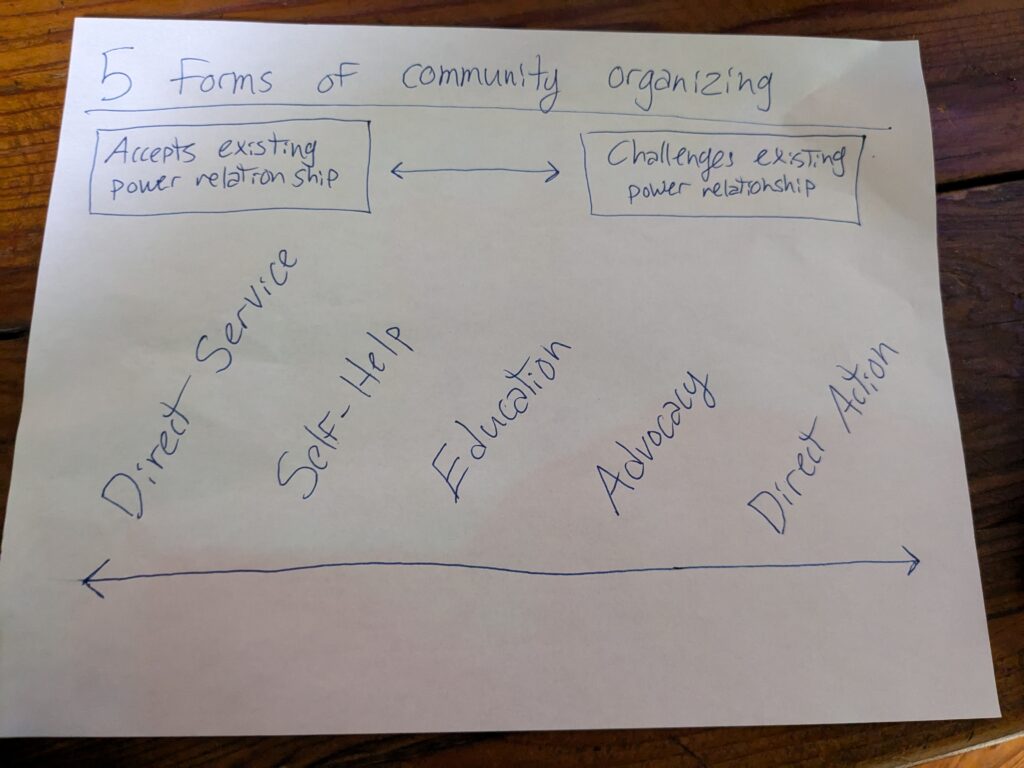 5 Forms of community organizing
Accepts existing
power relationship
Challenges existing
power relationship
Direct Service
Self-Help
Education
Advocacy
Direct Action